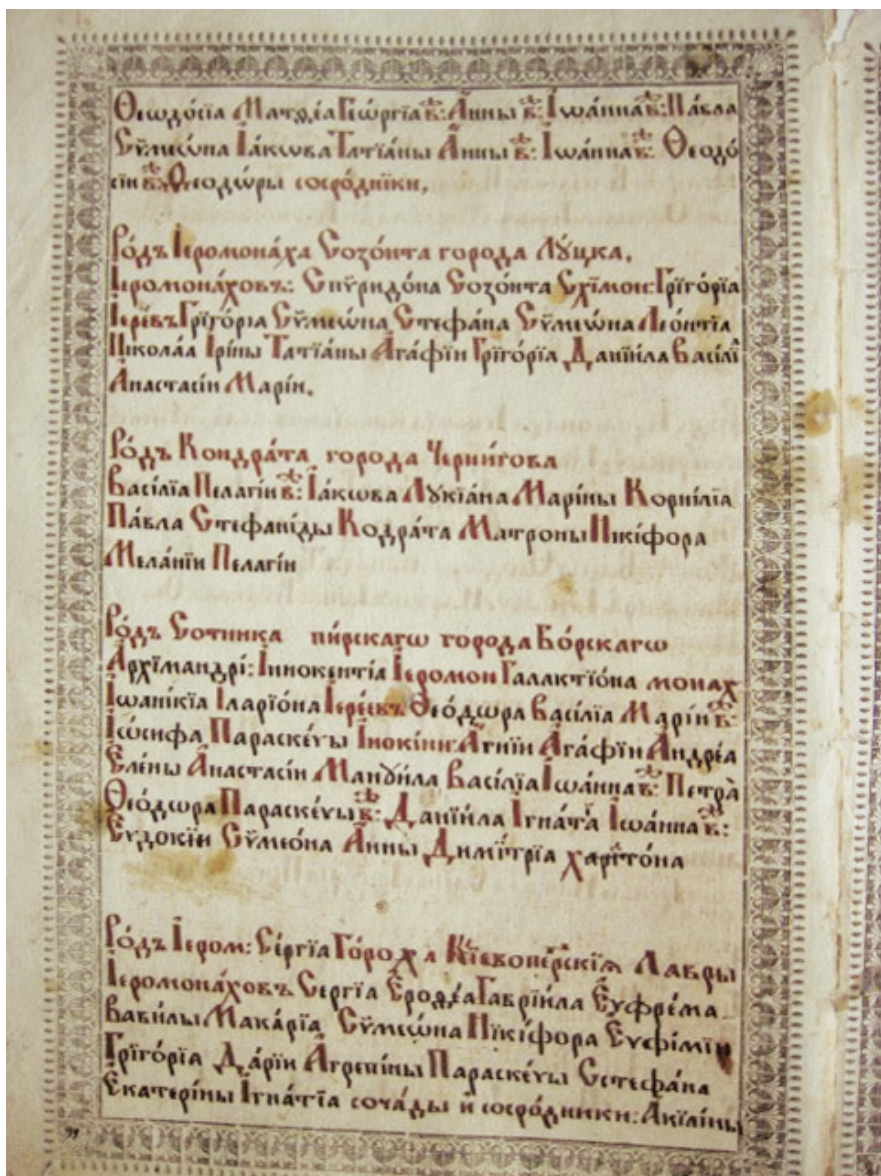 Ѳеодо́сїа Матѳе́а Гео́ргїа в҃: А҆́нны в҃: І҆ѡа́нна в҃: Па́вла
Сѷмеѡ́на І҆а́кѡва Татїа́ны А҆́нны в҃: І҆ѡа́нна в҃: Ѳеодо́
сїи в҃: Ѳеодѡ́ры сосро́дники.
Ро́дъ І҆еромона́ха Созо́нта города Лꙋ́цка.
І҆еромона́ховъ: Спѷридо́на Созо́нта Схи́мон: Григо́рїа
І҆ере́въ Григо́рїа Сѷмеѡ́на Стефа́на Сѷмеѡ́на Лео́нтїа
Никола́а І҆ри́ны Татїа́ны А҆га́фїи Григо́рїа Данїи́ла Васі́лї
А҆настасі́и Марі́и.
Ро́дъ Кондра́та города Черни́гова
Васі́лїа Пелагі́и в҃: І҆а́кѡва Лꙋкїа́на Мари́ны Корни́лїа
Па́вла Стефани́ды Кодра́та Матроны Ники́фора
Мела́нїи Пелагі́и
Ро́дъ Сотника пи́рскагѡ города Бо́рскагѡ
А҆рхїмандрі́: І҆ннокентїа І҆еромон Галактїо́на монах
І҆ѡані́кїа І҆ларїо́на І҆ере́въ Ѳео́дѡра Васі́лїа Марі́и в҃:
І҆ѡ́сифа Параске́ѵы І҆ноки́ни А҆гнїи А҆га́фїи Андре́а
Еле́ны А҆настасі́и Манꙋи́ла Васі́лїа І҆ѡа́нна в҃: Петра̀
Ѳео́дѡра Параске́ѵы в҃: Данїи́ла І҆гна́та І҆ѡа́нна в҃:
Еѵдокїи Сѷмео́на А҆́нны Дими́трїа Харито́на
Ро́дъ І҆ером: Се́ргїа Го́род а Кі́евопе́рскїѧ Лавры
І҆еромона́ховъ Се́ргїа Е҆родеа Гаврїи́ла Е҆ѵфре́ма
Вави́лы Мака́рїа Сѷмеѡ́на Ники́фора Еѵфі́мїи
Григо́рїа Да́рїи А҆грепі́ны Параске́ѵы Сстефа́на
Екатери́ны І҆гна́тїа соча́ды и҆ сосро́дники: Акили́ны